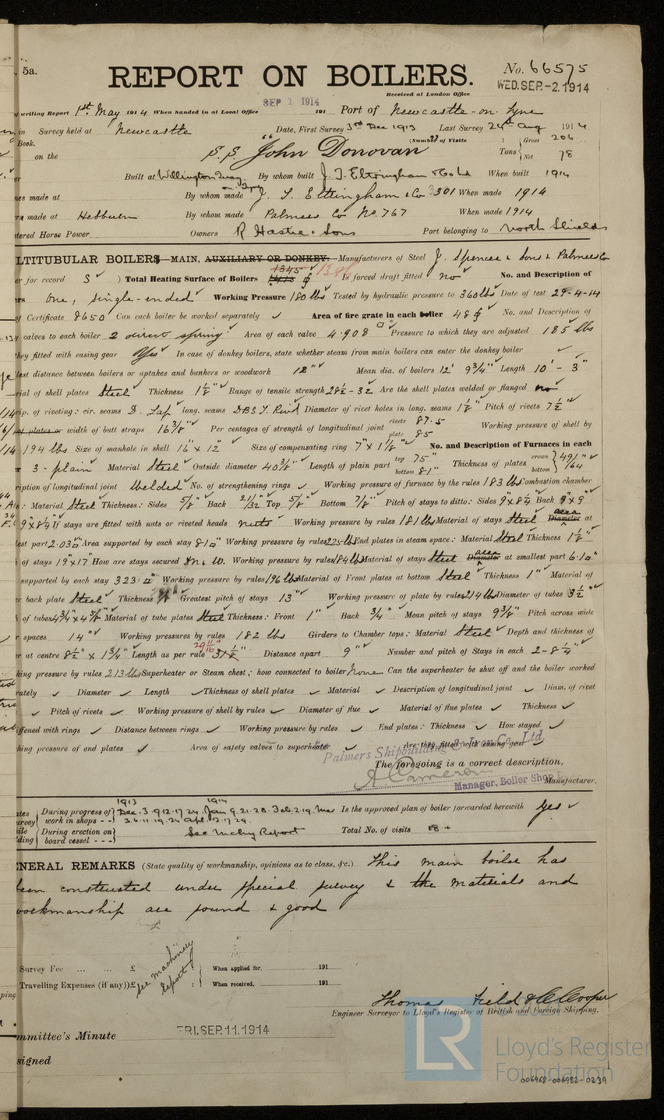 5a.
REPORT ON BOILERS.
No. 66575
Received at London Office
WED. SEP.-2. 1914
writing Report 1st May 1914 When handed in at Local Office SEP 1 1914 191 Port of Newcastle-on-Tyne
in Survey held at Newcastle Date, First Survey 3rd Dec 1913 Last Survey 24th Aug 1914
Book. (Number of Visits Gross 206
on the S.S. John Donovan Tons Net 78
Built at Willington Quay on Tyne By whom built J. T. Eltringham & Co Ld When built 1914
made at By whom made J. T. Eltringham & Co 301 When made 1914
made at Hebburn By whom made Palmers Co No. 767 When made 1914
tered Horse Power Owners R Hastie & Sons Port belonging to North Shields
LTITUBULAR BOILERS MAIN, AUXILIARY OR DONKEY. Manufacturers of Steel J. Spencer & Sons & Palmers Co
for record S ) Total Heating Surface of Boilers 1345 Is forced draft fitted no No. and Description of
One, single-ended Working Pressure 180 lbs Tested by hydraulic pressure to 360 lbs Date of test 29-4-14
of Certificate 8650 Can each boiler be worked separately Area of fire grate in each boiler 48 No. and Description of
valves to each boiler 2 direct spring Area of each valve 4.908 Pressure to which they are adjusted 185 lbs
they fitted with easing gear Yes In case of donkey boilers, state whether steam from main boilers can enter the donkey boiler
lest distance between boilers or uptakes and bunkers or woodwork 12" Mean dia. of boilers 12' 9¾" Length 10' - 3"
rial of shell plates Steel Thickness 1⅛" Range of tensile strength 28½-32 Are the shell plates welded or flanged no
rip. of riveting: cir. seams D. Lap long. seams Diameter of rivet holes in long. seams 1⅛" Pitch of rivets 7½"
plates or width of butt straps 16⅜" Per centages of strength of longitudinal joint rivets 87.5 plate 85 Working pressure of shell by
194 lbs Size of manhole in shell 16" x 12" Size of compensating ring 7" x 1⅛" No. and Description of Furnaces in each
3 - plain Material Steel Outside diameter 40⅜" Length of plain part top 75" bottom 81" Thickness of plates crown bottom 49/64
ription of longitudinal joint Welded No. of strengthening rings Working pressure of furnace by the rules 183 lbs Combustion chamber
Material Steel Thickness: Sides 5/8" Back 21/32 Top 5/8" Bottom 7/8" Pitch of stays to ditto: Sides 9" x 8¾ Back 9" x 9"
9" x 8¾ If stays are fitted with nuts or riveted heads nuts Working pressure by rules 181 lbs Material of stays Steel Diameter area at
lest part 2.03 Area supported by each stay 81 Working pressure by rules 225 lbs End plates in steam space: Material Steel Thickness 1⅛"
of stays 19 x 17" How are stays secured Working pressure by rules 184 lbs Material of stays Steel Diameter area at smallest part 6.10
supported by each stay 323 Working pressure by rules 196 lbs Material of Front plates at bottom Steel Thickness 1" Material of
back plate Steel Thickness Greatest pitch of stays 13" Working pressure of plate by rules 214 lbs Diameter of tubes 3½"
of tubes 4¾" x 4⅝" Material of tube plates Steel Thickness: Front 1" Back ¾" Mean pitch of stays 9⅜" Pitch across wide
spaces 14" Working pressures by rules 182 lbs Girders to Chamber tops: Material Steel Depth and thickness of
at centre 8½" x 1¾" Length as per rule 29 11/16 31⅛" Distance apart 9" Number and pitch of Stays in each 2-8¾"
king pressure by rules 213 lbs Superheater or Steam chest; how connected to boiler None Can the superheater be shut off and the boiler worked
rately Diameter Length Thickness of shell plates Material Description of longitudinal joint Diam. of rivet
Pitch of rivets Working pressure of shell by rules Diameter of flue Material of flue plates Thickness
iffened with rings Distance between rings Working pressure by rules End plates: Thickness How stayed
king pressure of end plates Area of safety valves to superheater Are they fitted with easing gear
Palmers Shipbuilding & Iron Co., Ltd
The foregoing is a correct description,
A Cameron Manufacturer.
Manager, Boiler Shop
During progress of work in shops 1913 Dec. 3. 9. 12. 17. 24. 1914 Jan. 9. 21. 28. Feb. 2. 19. Mar 3. 6. 11. 19. 24 Apr. 2. 17. 29. Is the approved plan of boiler forwarded herewith Yes
During erection on board vessel See Mchy Report Total No. of visits 18 +
NERAL REMARKS (State quality of workmanship, opinions as to class, &c.) This main boiler has
been constructed under special survey & the materials and
workmanship are sound & good
Survey Fee ... ... £ When applied for, 191
Travelling Expenses (if any) £ When received, 191
See Machinery Report
Thomas Field & C Cooper
Engineer Surveyor to Lloyd's Register of British and Foreign Shipping.
mmittee's Minute FRI. SEP. 11. 1914
signed
LR
Lloyd's Register
Foundation
006968-006982-0239